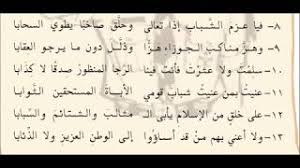 ٨- فيا عزمَ الشَّباب إذا تعالى وحلَّق صاخبًا يطوي السحابا
٩- وهزَّ مناكبَ الجوزاء هزًّا وذلَّل دون ما يرجو العقابا
١٠- سلمتَ ولا عثرتَ فأنتَ فينا الرجا المنظور صدقًا لا كِذابا
١١- عنيتُ بمن عنيتُ شبابَ قومي الأباةَ المستحقين الثَّوابا
١٢- على خلقٍ من الإسلام يأبى الـ مثالبَ والشتائمَ والسِّبابا
١٣- ولا أعني بهم من قد أساؤوا إلى الوطن العزيز ولا الذئابا